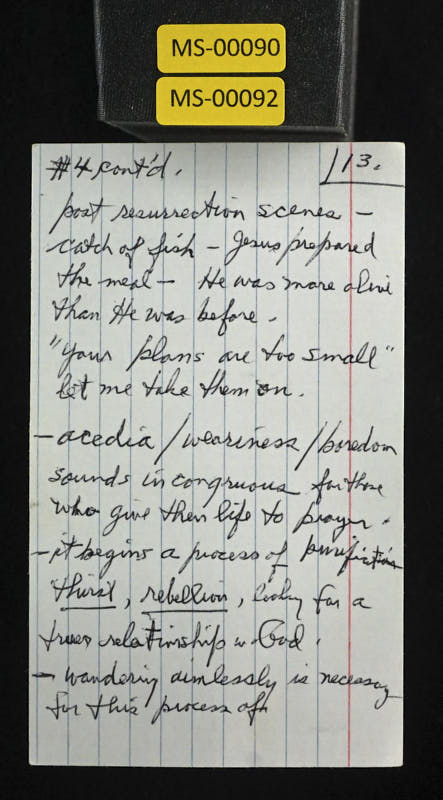 MS-00090
MS-00092
#4 cont'd.
13.
post resurrection scenes -
catch of fish - Jesus prepared
the meal - He was more alive
than He was before.
"Your plans are too small"
let me take them on.
- acedia / weariness / boredom
sounds incongruous for those
who give their life to prayer.
- it begins a process of purification
thirst, rebellion, looking for a
truer relationship w. God.
- wandering aimlessly is necessary
for this process of